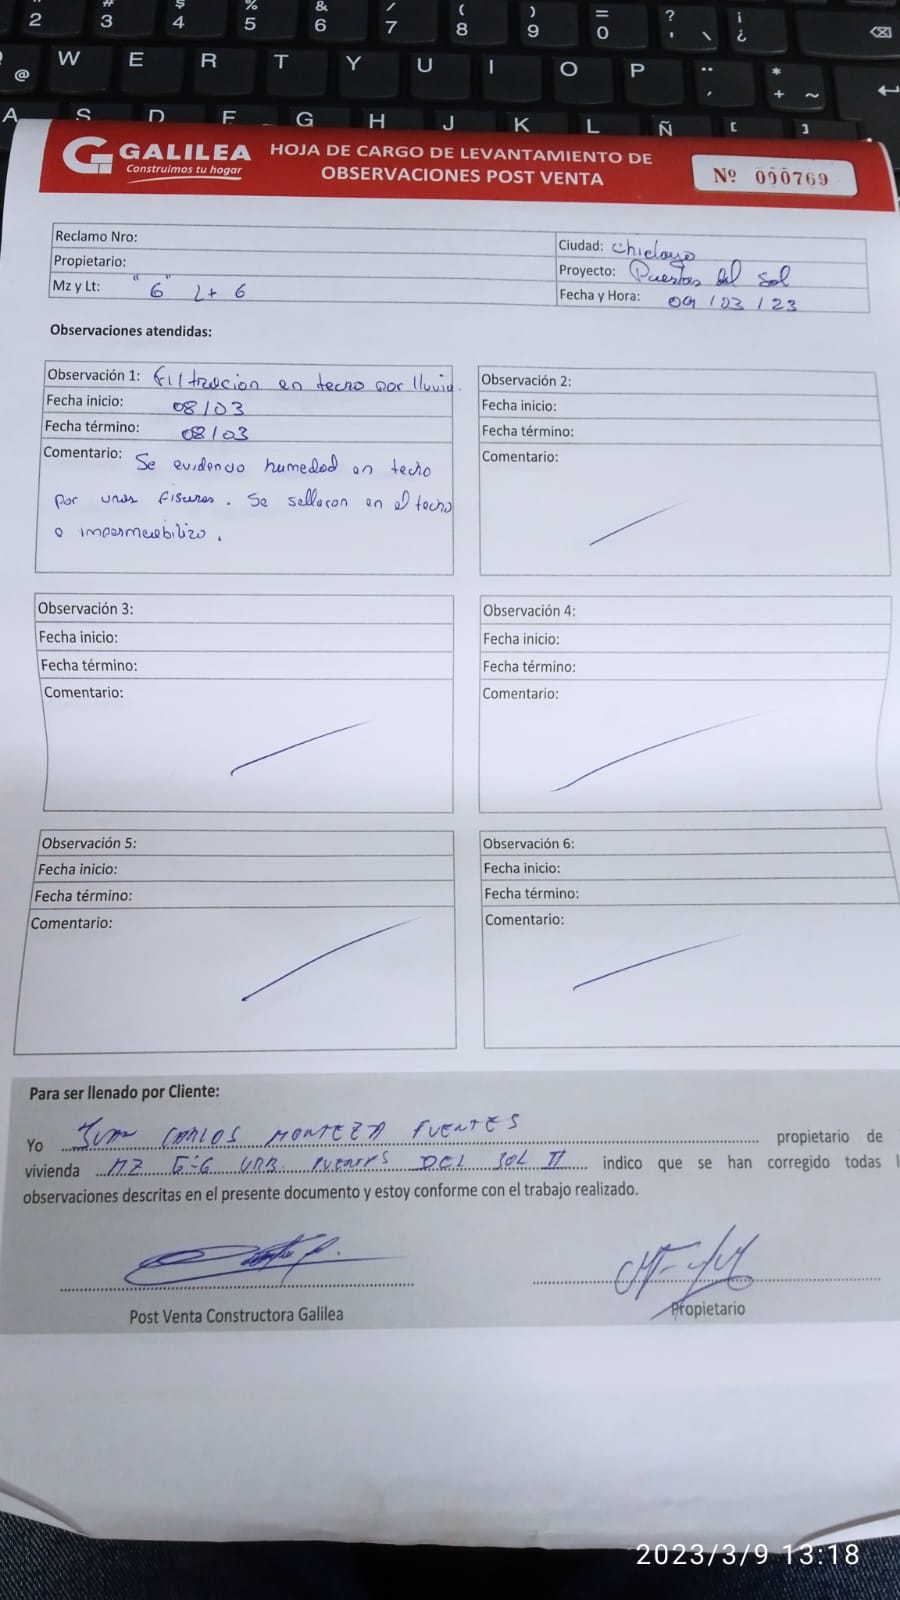 " # $ % & / ( ) = ? ¡
2 3 4 5 6 7 8 9 0 ' \ ¿
@ W E R T Y U I O P ¨ *
´ + ~
A S D F G H J K L Ñ [ ]
GALILEA
Construimos tu hogar
HOJA DE CARGO DE LEVANTAMIENTO DE
OBSERVACIONES POST VENTA
Nº 000769
Reclamo Nro:
Propietario:
Mz y Lt: "G" Lt 6
Ciudad: Chiclayo
Proyecto: Puertas del Sol
Fecha y Hora: 09/03/23
Observaciones atendidas:
Observación 1: Filtracion en techo por lluvia.
Fecha inicio: 08/03
Fecha término: 08/03
Comentario: Se evidencio humedad en techo
por unas fisuras. Se sellaron en el techo
e impermeabilizo.
Observación 2:
Fecha inicio:
Fecha término:
Comentario:
Observación 3:
Fecha inicio:
Fecha término:
Comentario:
Observación 4:
Fecha inicio:
Fecha término:
Comentario:
Observación 5:
Fecha inicio:
Fecha término:
Comentario:
Observación 6:
Fecha inicio:
Fecha término:
Comentario:
Para ser llenado por Cliente:
Yo JUAN CARLOS MONTEZA FUENTES propietario de
vivienda MZ G-6 URB. PUERTAS DEL SOL II indico que se han corregido todas l
observaciones descritas en el presente documento y estoy conforme con el trabajo realizado.
Post Venta Constructora Galilea
Propietario
2023/3/9 13:18